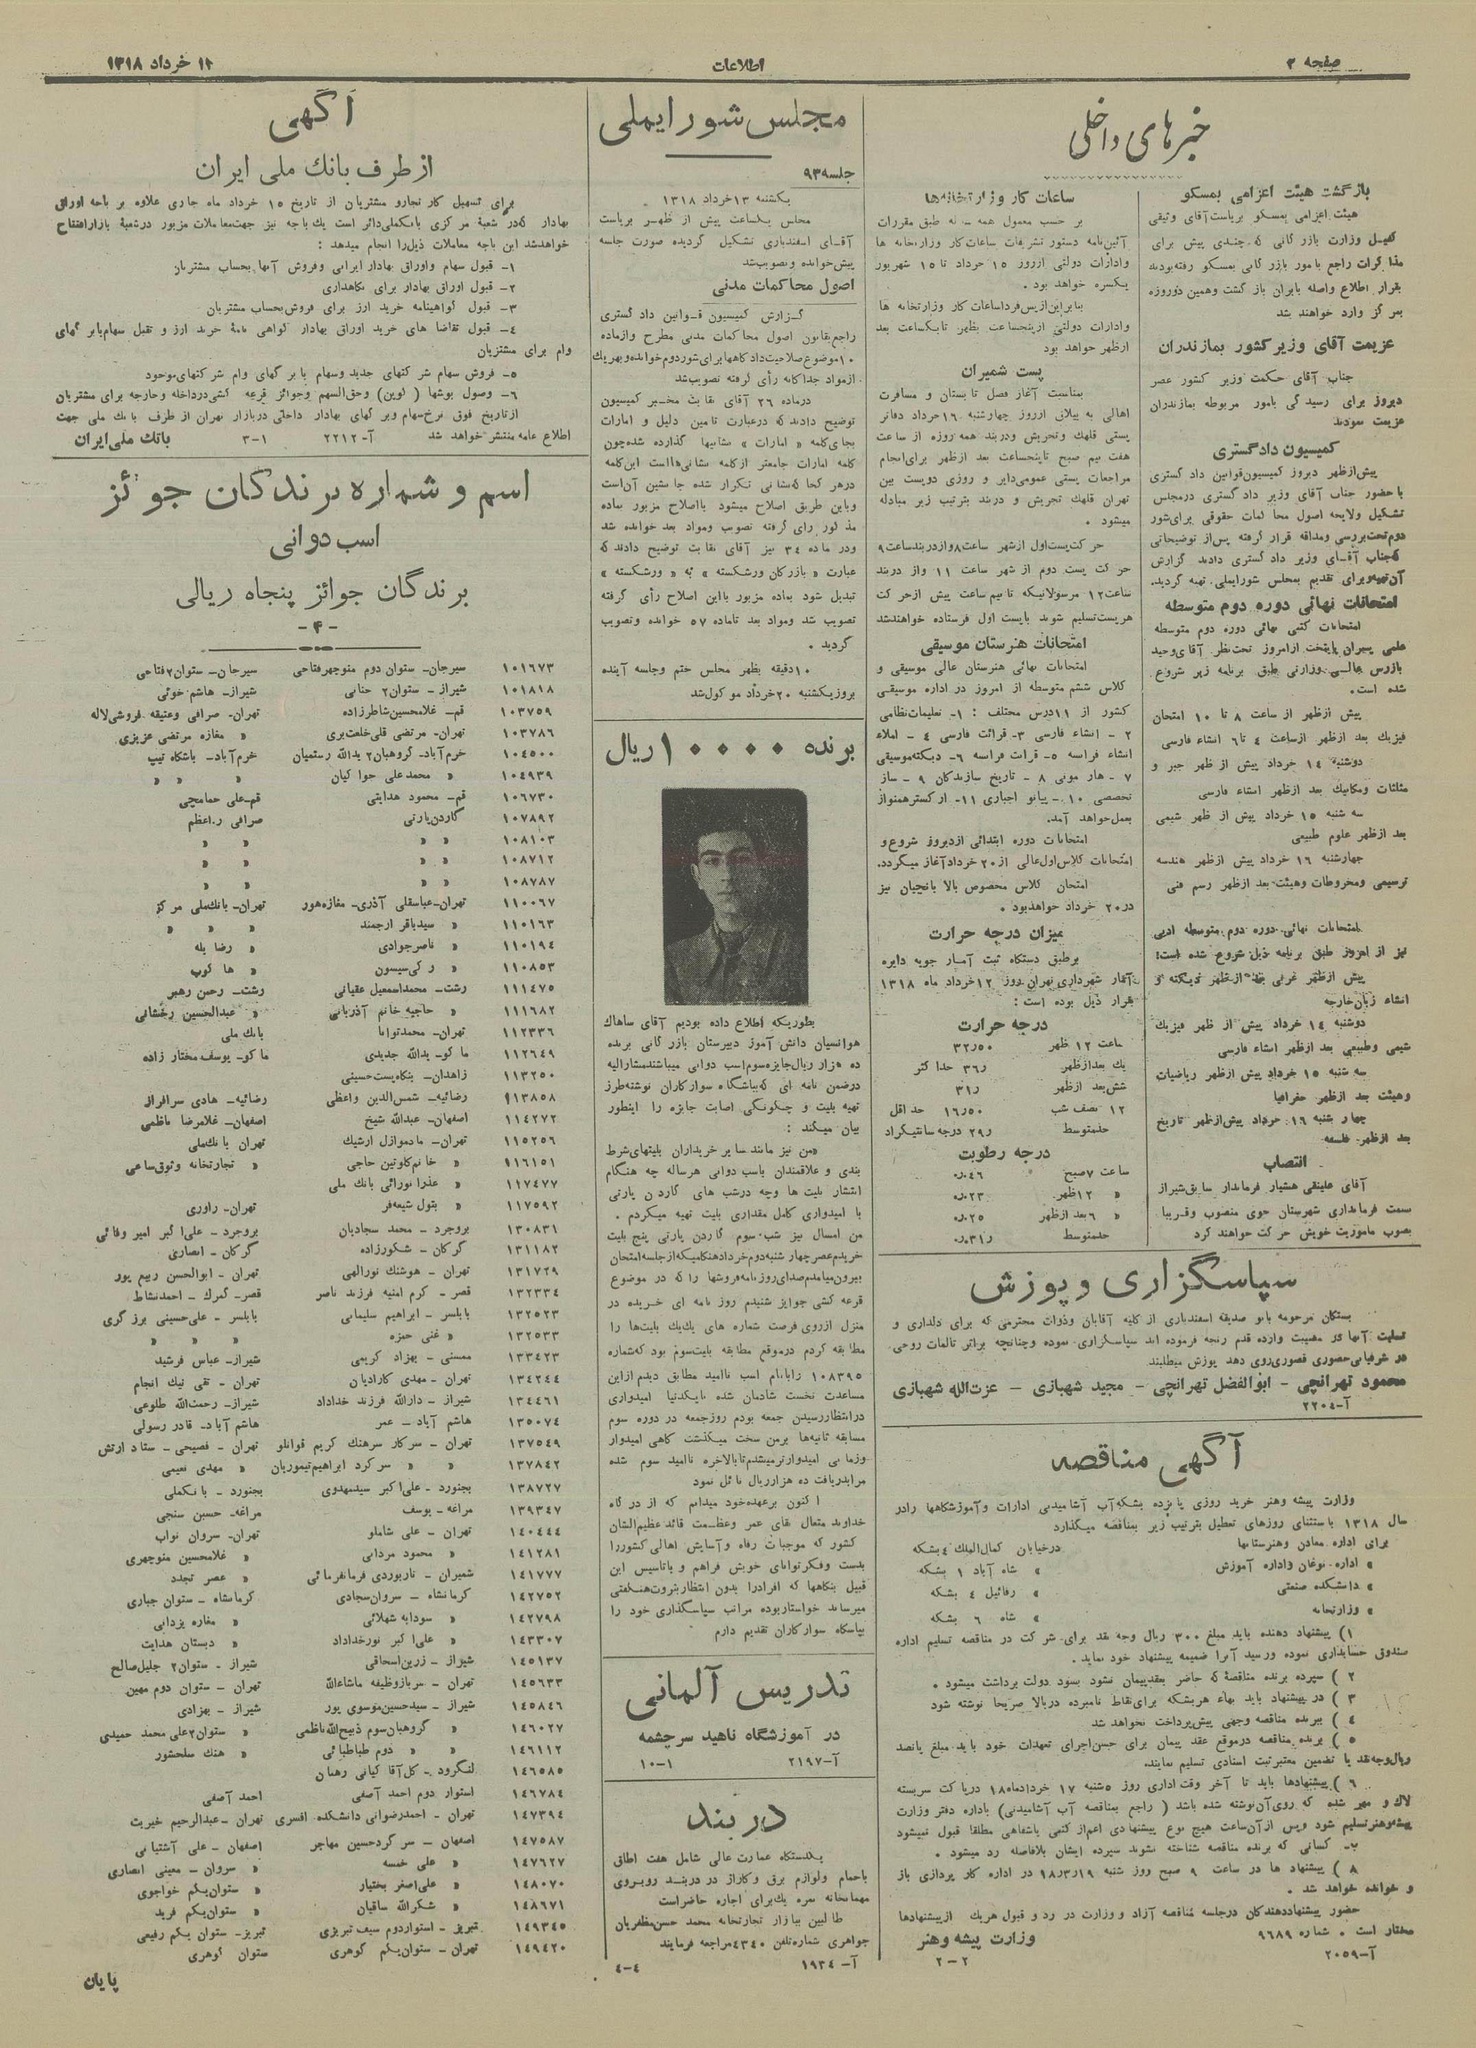 صفحه ۲
اطلاعات
۱۲ خرداد ۱۳۱۸
خبرهای داخلی
بازگشت هیئت اعزامی بمسکو
هیئت اعزامی بمسکو بریاست آقای وثیقی
کفیل وزارت بازرگانی که چندی پیش برای
مذاکرات راجع بامور بازرگانی بمسکو رفته بودند
بقرار اطلاع واصله بایران بازگشت وهمین دوروزه
بمرکز وارد خواهند شد
عزیمت آقای وزیر کشور بمازندران
جناب آقای حکمت وزیر کشور عصر
دیروز برای رسیدگی بامور مربوطه بمازندران
عزیمت نمودند
کمیسیون دادگستری
پیش ازظهر دیروز کمیسیون قوانین دادگستری
با حضور جناب آقای وزیر دادگستری درمجلس
تشکیل ولایحه اصول محاکمات حقوقی برای شور
دوم تحت بررسی ومداقه قرار گرفته پس از توضیحاتی
که جناب آقای وزیر دادگستری دادند گزارش
آن تهیه وبرای تقدیم بمجلس شورایملی تهیه گردید.
امتحانات نهائی دوره دوم متوسطه
امتحانات کتبی نهائی دوره دوم متوسطه
علمی پسران پایتخت ازامروز تحت نظر آقای وحید
بازرس عالی وزارتی طبق برنامه زیر شروع
شده است.
پیش ازظهر از ساعت ۸ تا ۱۰ امتحان
فیزیک بعد ازظهر ازساعت ٤ تا ٦ انشاء فارسی
دوشنبه ۱٤ خرداد پیش از ظهر جبر و
مثلثات ومکانیک بعد ازظهر انشاء فارسی
سه شنبه ۱٥ خرداد پیش از ظهر شیمی
بعد ازظهر علوم طبیعی
چهارشنبه ۱٦ خرداد پیش ازظهر هندسه
ترسیمی ومخروطات وهیئت بعد ازظهر رسم فنی
امتحانات نهائی دوره دوم متوسطه ادبی
نیز از امروز طبق برنامه ذیل شروع شده است:
پیش ازظهر عربی بعد ازظهر دیکته و
انشاء زبان خارجه
دوشنبه ۱٤ خرداد پیش از ظهر فیزیک
شیمی وطبیعی بعد ازظهر انشاء فارسی
سه شنبه ۱٥ خرداد پیش ازظهر ریاضیات
وهیئت بعد ازظهر جغرافیا
چهار شنبه ۱٦ خرداد پیش ازظهر تاریخ
بعد ازظهر فلسفه
انتصاب
آقای علینقی هشیار فرماندار سابق شیراز
بسمت فرمانداری شهرستان خوی منصوب وقریبا
بصوب ماموریت خویش حرکت خواهند کرد
ساعات کار وزارتخانه‌ها
بر حسب معمول همه ساله طبق مقررات
آئین نامه دستور تشریفات ساعات کار وزارتخانه ها
وادارات دولتی ازروز ۱٥ خرداد تا ۱٥ شهریور
یکسره خواهد بود.
بنابراین ازپس فردا ساعات کار وزارتخانه ها
وادارات دولتی ازپنجساعت بظهر تا یکساعت بعد
ازظهر خواهد بود
پست شمیران
بمناسبت آغاز فصل تابستان و مسافرت
اهالی به ییلاق ازروز چهارشنبه ۱٦ خرداد دفاتر
پستی قلهک وتجریش ودربند همه روزه از ساعت
هفت نیم صبح تا پنجساعت بعد ازظهر برای انجام
مراجعات پستی عمومی دایر و روزی دوپست بین
تهران قلهک تجریش و دربند بترتیب زیر مبادله
میشود.
حرکت پست اول از شهر ساعت ۸ و از دربند ساعت ۹
حرکت پست دوم از شهر ساعت ۱۱ و از دربند
ساعت ۱۲ مرسولاتیکه تا نیم ساعت پیش از حرکت
هر پست تسلیم شوند با پست اول فرستاده خواهند شد
امتحانات هنرستان موسیقی
امتحانات نهائی هنرستان عالی موسیقی و
کلاس ششم متوسطه از امروز در اداره موسیقی
کشور از ۱۱ درس مختلف : ۱- تعلیمات نظامی
۲ - انشاء فارسی ۳- قرائت فارسی ٤ - املاء
انشاء فرانسه ٥- قرائت فرانسه ٦- دیکته موسیقی
۷ - هارمونی ۸ - تاریخ سازندگان ۹ - ساز
تخصصی ۱۰ - پیانو اجباری ۱۱- ارکستر همنواز
بعمل خواهد آمد.
امتحانات دوره ابتدائی ازدیروز شروع و
امتحانات کلاس اول عالی از ۲۰ خرداد آغاز میگردد.
امتحان کلاس مخصوص بالا بانچیان نیز
در ۲۰ خرداد خواهد بود.
میزان درجه حرارت
برطبق دستگاه ثبت آمار جویه دایره
آمار شهرداری تهران روز ۱۲ خرداد ماه ۱۳۱۸
بقرار ذیل بوده است :
درجه حرارت
ساعت ۱۲ ظهر ۳۲٫٥۰
یک بعدازظهر ۳٦٫ حداکثر
شش بعد ازظهر ۳۱٫
۱۲ نصف شب ۱٦٫٥۰ حداقل
حدمتوسط ۲۹٫ درجه سانتیگراد
درجه رطوبت
ساعت ۷ صبح ۰٫٤٦
« ۱۲ ظهر ۰٫۲۳
« ٦ بعد ازظهر ۰٫۲٥
حدمتوسط ۰٫۳۱
سپاسگزاری و پوزش
بستگان مرحومه بانو صدیقه اسفندیاری از کلیه آقایان وذوات محترمی که برای دلداری و
تسلیت آنها در مصیبت وارده قدم رنجه فرموده اند سپاسگزاری نموده وچنانچه براثر تالمات روحی
در شرفیابی حضوری قصوری روی دهد پوزش میطلبند
محمود تهرانچی - ابوالفضل تهرانچی - مجید شهبازی - عزت الله شهبازی
آ-۲۲۰٤
آگهی مناقصه
وزارت پیشه وهنر خرید روزی پانزده بشکه آب آشامیدنی ادارات وآموزشگاهها رادر
سال ۱۳۱۸ باستثنای روزهای تعطیل بترتیب زیر بمناقصه میگذارد
برای اداره معادن وهنرستانها درخیابان کمال الملک ٤ بشکه
« اداره نوغان واداره آموزش « شاه آباد ۱ بشکه
« دانشکده صنعتی « رفائیل ٤ بشکه
« وزارتخانه « شاه ٦ بشکه
۱) پیشنهاد دهنده باید مبلغ ۳۰۰ ریال وجه نقد برای شرکت در مناقصه تسلیم اداره
صندوق حسابداری نموده ورسید آنرا ضمیمه پیشنهاد خود نماید.
۲) سپرده برنده مناقصه که حاضر بعقد پیمان نشود بسود دولت برداشت میشود.
۳) در پیشنهاد باید بهاء هربشکه برای نقاط نامبرده دربالا صریحا نوشته شود
٤) ببرنده مناقصه وجهی پیش پرداخت نخواهد شد
٥) برنده مناقصه درموقع عقد پیمان برای حسن اجرای تعهدات خود باید مبلغ پانصد
ریال وجه نقد یا تضمین معتبر ثبت اسنادی تسلیم نمایند.
٦) پیشنهادها باید تا آخر وقت اداری روز ٥ شنبه ۱۷ خردادماه ۱۸ درپاکت سربسته
لاک و مهر شده که روی آن نوشته شده باشد ( راجع بمناقصه آب آشامیدنی) باداره دفتر وزارت
پیشه وهنر تسلیم شود وپس از آن ساعت هیچ نوع پیشنهادی اعم از کتبی یا شفاهی مطلقا قبول نمیشود
۷- کسانی که برنده مناقصه شناخته نشوند سپرده ایشان بلافاصله رد میشود.
۸) پیشنهاد ها در ساعت ۹ صبح روز شنبه ۱۸٫۳٫۱۹ در اداره کارپردازی باز
و خوانده خواهد شد.
حضور پیشنهاد دهندگان درجلسه مناقصه آزاد و وزارت در رد و قبول هریک ازپیشنهادها
مختار است . شماره ۹٦۸۹ وزارت پیشه وهنر
آ-۲۰٥۹ ۲-۲
مجلس شورایملی
جلسه ۹۳
یکشنبه ۱۳ خرداد ۱۳۱۸
مجلس یکساعت پیش از ظهر بریاست
آقای اسفندیاری تشکیل گردیده صورت جلسه
پیش خوانده وتصویب شد
اصول محاکمات مدنی
گزارش کمیسیون قوانین دادگستری
راجع بقانون اصول محاکمات مدنی مطرح وازماده
۱۰ موضوع صلاحیت دادگاهها برای شور دوم خوانده وبهریک
ازمواد جداگانه رأی گرفته تصویب شد
درماده ۲٦ آقای نقابت مخبر کمیسیون
توضیح دادند که درعبارت تامین دلیل و امارات
بجای کلمه « امارات » نشانیها گذارده شده چون
کلمه امارات جامعتر ازکلمه نشانی هااست این کلمه
درهر کجا که نشانی تکرار شده جانشین آن است
وباین طریق اصلاح میشود بااصلاح مزبور بماده
مذکور رای گرفته تصویب ومواد بعد خوانده شد
ودر ماده ۳٤ نیز آقای نقابت توضیح دادند که
عبارت « بازرگان ورشکسته » به « ورشکسته »
تبدیل شود بماده مزبور بااین اصلاح رأی گرفته
تصویب شد ومواد بعد تاماده ٥۷ خوانده وتصویب
گردید.
۱۰ دقیقه بظهر مجلس ختم وجلسه آینده
بروز یکشنبه ۲۰ خرداد موکول شد
برنده ۱۰۰۰۰ ریال
بطوریکه اطلاع داده بودیم آقای ساهاک
هوانسیان دانش آموز دبیرستان بازرگانی برنده
ده هزار ریال جایزه سوم اسب دوانی میباشند مشارالیه
درضمن نامه ای که بباشگاه سوارکاران نوشته طرز
تهیه بلیت و چگونگی اصابت جایزه را اینطور
بیان میکند :
«من نیز مانند سایر خریداران بلیتهای شرط
بندی و علاقمندان باسب دوانی هرساله چه هنگام
انتشار بلیت ها وچه درشب های گاردن پارتی
با امیدواری کامل مقداری بلیت تهیه میکردم.
من امسال نیز شب سوم گاردن پارتی پنج بلیت
خریدم عصر چهارشنبه دوم خرداد هنگامیکه از جلسه امتحان
بیرون میامدم صدای روزنامه فروشها را که در موضوع
قرعه کشی جوایز شنیدم روزنامه ای خریده در
منزل ازروی فرصت شماره های یک یک بلیت‌ها را
مطابقه کردم درموقع مطابقه بلیت سوم بود که شماره
۱۰۸۳۹٥ رابانام اسب ناامید مطابق دیدم ازاین
مساعدت نخست شادمان شده بایک دنیا امیدواری
در انتظار رسیدن جمعه بودم روزجمعه در دوره سوم
مسابقه ثانیه‌ها برمن سخت میگذشت گاهی امیدوار
وزمانی امیدوارتر میشدم تابالاخره ناامید سوم شده
مرا بدریافت ده هزارریال نائل نمود
اکنون برعهده خود میدانم که از درگاه
خداوند متعال بقای عمر وعظمت قائد عظیم الشان
کشور که موجبات رفاه وآسایش اهالی کشوررا
بدست وفکر توانای خویش فراهم و باتاسیس این
قبیل بنگاهها که افرادرا بدون انتظار بثروت هنگفتی
میرساند خواستار بوده مراتب سپاسگذاری خود را
بباشگاه سوارکاران تقدیم دارم
تدریس آلمانی
در آموزشگاه ناهید سرچشمه
آ-۲۱۹۷ ۱-۱۰
دربند
یکدستگاه عمارت عالی شامل هفت اطاق
باحمام ولوازم برق وکاراژ در دربند روبروی
مهمانخانه نمره یک برای اجاره حاضر است
طالبین ببازار تجارتخانه محمد حسن مظفریان
جواهری شماره تلفن ٤۳٤۰ مراجعه فرمایند
آ-۱۹۳٤ ٤-٤
آگهی
از طرف بانک ملی ایران
برای تسهیل کار تجارو مشتریان از تاریخ ۱٥ خرداد ماه جاری علاوه بر باجه اوراق
بهادار که در شعبه مرکزی بانکملی دائر است یک باجه نیز جهت معاملات مزبور درشعبه بازار افتتاح
خواهد شد این باجه معاملات ذیل را انجام میدهد :
۱- قبول سهام واوراق بهادار ایرانی وفروش آنها بحساب مشتریان
۲- قبول اوراق بهادار برای نگاهداری
۳- قبول گواهینامه خرید ارز برای فروش بحساب مشتریان
٤- قبول تقاضا های خرید اوراق بهادار گواهی نامهٔ خرید ارز و تقبل سهام یابرگهای
وام برای مشتریان
٥- فروش سهام شرکتهای جدید وسهام یا برگهای وام شرکتهای موجود
٦- وصول بوشها (کوپن) وحق السهم وجوائز قرعه کشی درداخله وخارجه برای مشتریان
ازتاریخ فوق نرخ سهام وبرگهای بهادار داخلی دربازار تهران از طرف بانک ملی جهت
اطلاع عامه منتشر خواهد شد آ-۲۲۱۲ ۱-۳ بانک ملی ایران
اسم و شماره برندگان جوائز
اسب دوانی
برندگان جوائز پنجاه ریالی
-٤-
۱۰۱٦۷۳ سیرجان- ستوان دوم منوچهرفتاحی سیرجان- ستوان۲فتاحی
۱۰۱۸۱۸ شیراز - ستوان۲ حنانی شیراز- هاشم خوئی
۱۰۳۷٥۹ قم- غلامحسین شاطرزاده تهران- صرافی وعتیقه فروشی لاله
۱۰۳۷۸٦ تهران- مرتضی قلی خلعت بری « مغازه مرتضی عزیزی
۱۰٤٥۰۰ خرم آباد- گروهبان۲ یدالله رستمیان خرم آباد- باشگاه تیپ
۱۰٤۹۳۹ « محمدعلی جوا کیان « « «
۱۰٦۷۳۰ قم- محمود هدایتی قم-علی حمامچی
۱۰۷۸۹۲ گاردن پارتی صرافی ر.اعظم
۱۰۸۱۰۳ « « « «
۱۰۸۷۱۲ « « « «
۱۰۸۷۸۷ « « « «
۱۱۰۰٦۷ تهران-عباسقلی آذری- مغازه هور تهران- بانک ملی مرکز
۱۱۰۱٦۳ « سیدباقر ارجمند « « «
۱۱۰۱۹٤ « ناصرجوادی « رضا بله
۱۱۰۸٥۳ « رکی سیسون « ها کوپ
۱۱۱٤۷٥ رشت- محمداسمعیل عقبائی رشت- رحمن رهبر
۱۱۱٦۸۲ « حاجیه خانم آذربانی « عبدالحسین رخشانی
۱۱۲۳۳٦ تهران- محمدتوانا بانک ملی
۱۱۲٦٤۹ ماکو- یدالله جدیدی ماکو- یوسف مختار زاده
۱۱۳۲٥۰ زاهدان- بنگاه پست حسینی
۱۱۳۸٥۸ رضائیه- شمس الدین واعظی رضائیه- هادی سرافراز
۱۱٤۲۷۲ اصفهان- عبدالله شیخ اصفهان- غلامرضا ناظمی
۱۱٥۲٥٦ تهران- مادموازل ارشیک تهران بانک ملی
۱۱٦۱٥۱ « خانم کاوتین حاجی « تجارتخانه وثوق ساعی
۱۱۷٤۷۷ « عذرا نورائی بانک ملی
۱۱۷٥۹۲ « بتول شیعه فر تهران- راوری
۱۳۰۸۳۱ بروجرد - محمد سجادیان بروجرد - علی اکبر امیر وفائی
۱۳۱۱۸۲ گرگان - شکورزاده گرگان - انصاری
۱۳۱۷۲۹ تهران - هوشنگ نورالهی تهران - ابوالحسن ربیع پور
۱۳۲۳۳٤ قصر - کرم امنیه فرزند ناصر قصر- گمرک - احمدنشاط
۱۳۲٥۲۳ بابلسر - ابراهیم سلیمانی بابلسر - علی حسینی برزگری
۱۳۲٥۳۳ « غنی حمزه « « «
۱۳۳٤۲۳ ممسنی - بهزاد کریمی شیراز- عباس فرشید
۱۳٤۲٤٤ تهران - مهدی کارادیان تهران - تقی نیک انجام
۱۳٤٤٦۱ شیراز - دارالله فرزند خداداد شیراز- رحمت الله طلوعی
۱۳٥۰۷٤ هاشم آباد - عمر هاشم آباد- قادر رسولی
۱۳۷٥٤۹ تهران - سرکار سرهنگ کریم قوانلو تهران - فصیحی - ستاد ارتش
۱۳۷۸٤۲ « « سرگرد ابراهیم تیموریان « مهدی نعیمی
۱۳۸۷۲۷ بجنورد - علی اکبر سیدمهدوی بجنورد - بانکملی
۱۳۹۳٤۷ مراغه - یوسف مراغه- حسین سنجی
۱٤۰٤٤٤ تهران - علی شاملو تهران- سروان نواب
۱٤۱۲۸۱ « محمود مردانی « غلامحسین منوچهری
۱٤۱۷۷۷ شمیران - ناربوردی فرمانفرمائی « عصر تجدد
۱٤۲۷٥۲ کرمانشاه - سروان سجادی کرمانشاه - ستوان جباری
۱٤۲۷۹۸ « سودابه شهلائی « مغازه یزدانی
۱٤۳۳۰۷ « علی اکبر نورخداداد « دبستان هدایت
۱٤٥۱۳۷ شیراز - زرین اسحاقی شیراز - ستوان۲ جلیل صالح
۱٤٥٦۳۳ تهران - سرباز وظیفه ماشاءالله تهران - ستوان دوم مهین
۱٤٥۸٤٦ شیراز - سیدحسین موسوی پور شیراز - بهزادی
۱٤٦۰۲۷ « گروهبان سوم ذبیح الله ناظمی « ستوان۲علی محمد حمیدی
۱٤٦۱۱۲ « « دوم طباطبائی « هنگ سلحشور
۱٤٦٥۸٥ لنگرود - کل آقا کیانی رهبان
۱٤٦۷۸٤ استوار دوم احمد آصفی احمد آصفی
۱٤۷۳۹٤ تهران - احمدرضوانی دانشکده افسری تهران -عبدالرحیم خیریت
۱٤۷٥۸۷ اصفهان - سرگرد حسین مهاجر اصفهان - علی آشتیانی
۱٤۷٦۲۷ « علی خمسه « سروان - معینی انصاری
۱٤۸۰۷۰ « علی اصغر بختیار « ستوان یکم خواجوی
۱٤۸٦۷۱ « شکرالله ساقیان « ستوان یکم فرید
۱٤۹۳٤٥ تبریز - استواردوم سیف تبریزی تبریز- ستوان یکم رفیعی
۱٤۹٤۲۰ تهران - ستوان یکم گوهری ستوان گوهری
پایان